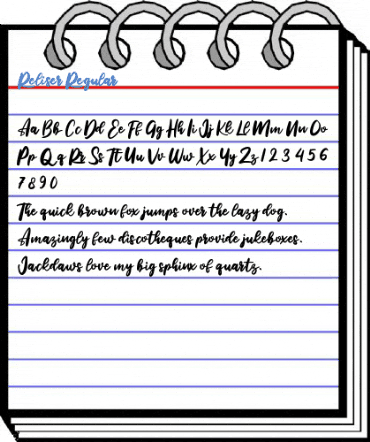 Reliser Regular
Aa Bb Cc Dd Ee Ff Gg Hh Ii Jj Kk Ll Mm Nn Oo
Pp Qq Rr Ss Tt Uu Vv Ww Xx Yy Zz 1 2 3 4 5 6
7 8 9 0
The quick brown fox jumps over the lazy dog.
Amazingly few discotheques provide jukeboxes.
Jackdaws love my big sphinx of quartz.